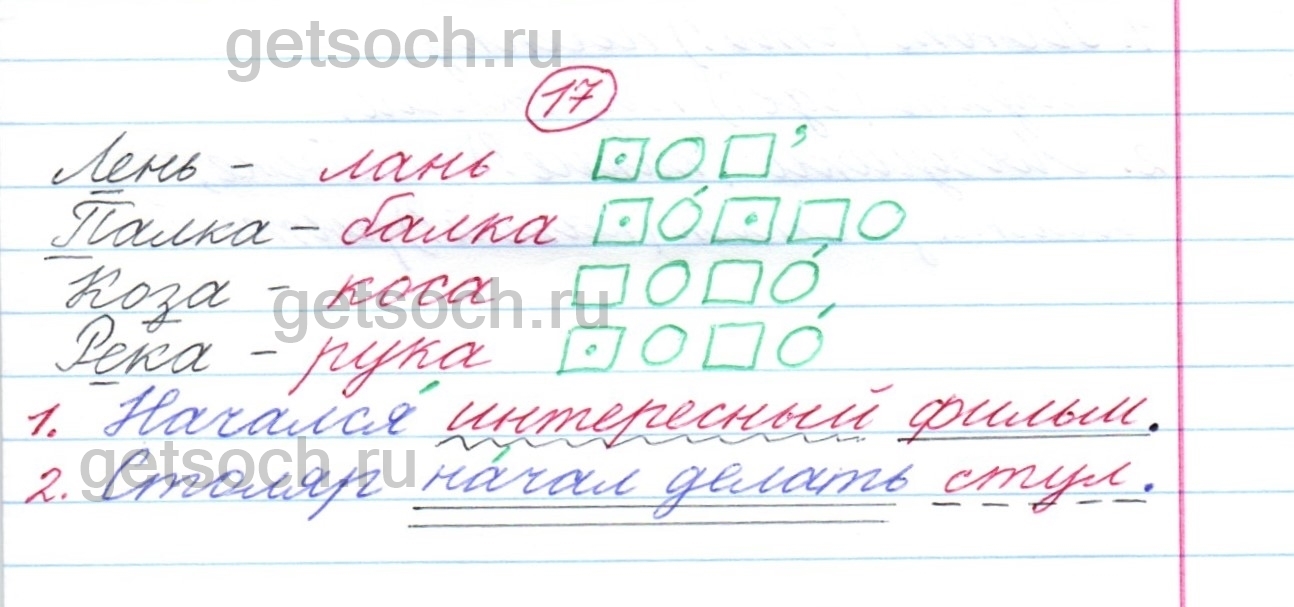 getsoch.ru
17
Лень - лань
Палка - балка
Коза - коса
getsoch.ru
Река - рука
1. Начался́ интересный фильм.
getsoch.ru
2. Столяр на́чал делать стул.